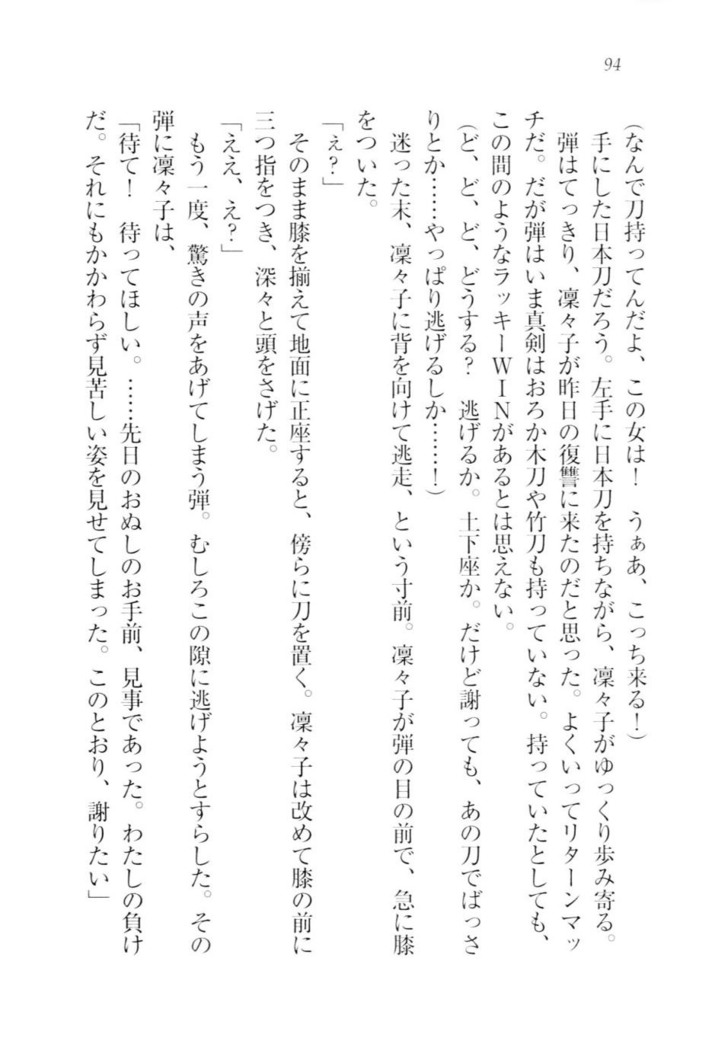 94
(なんで刀持ってんだよ、この女は！　うぁあ、こっち来る！)
手にした日本刀だろう。左手に日本刀を持ちながら、凜々子がゆっくり歩み寄る。
弾はてっきり、凜々子が昨日の復讐に来たのだと思った。よくいってリターンマッ
チだ。だが弾はいま真剣はおろか木刀や竹刀も持っていない。持っていたとしても、
この間のようなラッキーＷＩＮがあるとは思えない。
(ど、ど、ど、どうする？　逃げるか。土下座か。だけど謝っても、あの刀でばっさ
りとか……やっぱり逃げるしか……！)
迷った末、凜々子に背を向けて逃走、という寸前。凜々子が弾の目の前で、急に膝
をついた。
「ぇ？」
そのまま膝を揃えて地面に正座すると、傍らに刀を置く。凜々子は改めて膝の前に
三つ指をつき、深々と頭をさげた。
「ええ、え？」
もう一度、驚きの声をあげてしまう弾。むしろこの隙に逃げようとすらした。その
弾に凜々子は、
「待て！　待ってほしい。……先日のおぬしのお手前、見事であった。わたしの負け
だ。それにもかかわらず見苦しい姿を見せてしまった。このとおり、謝りたい」